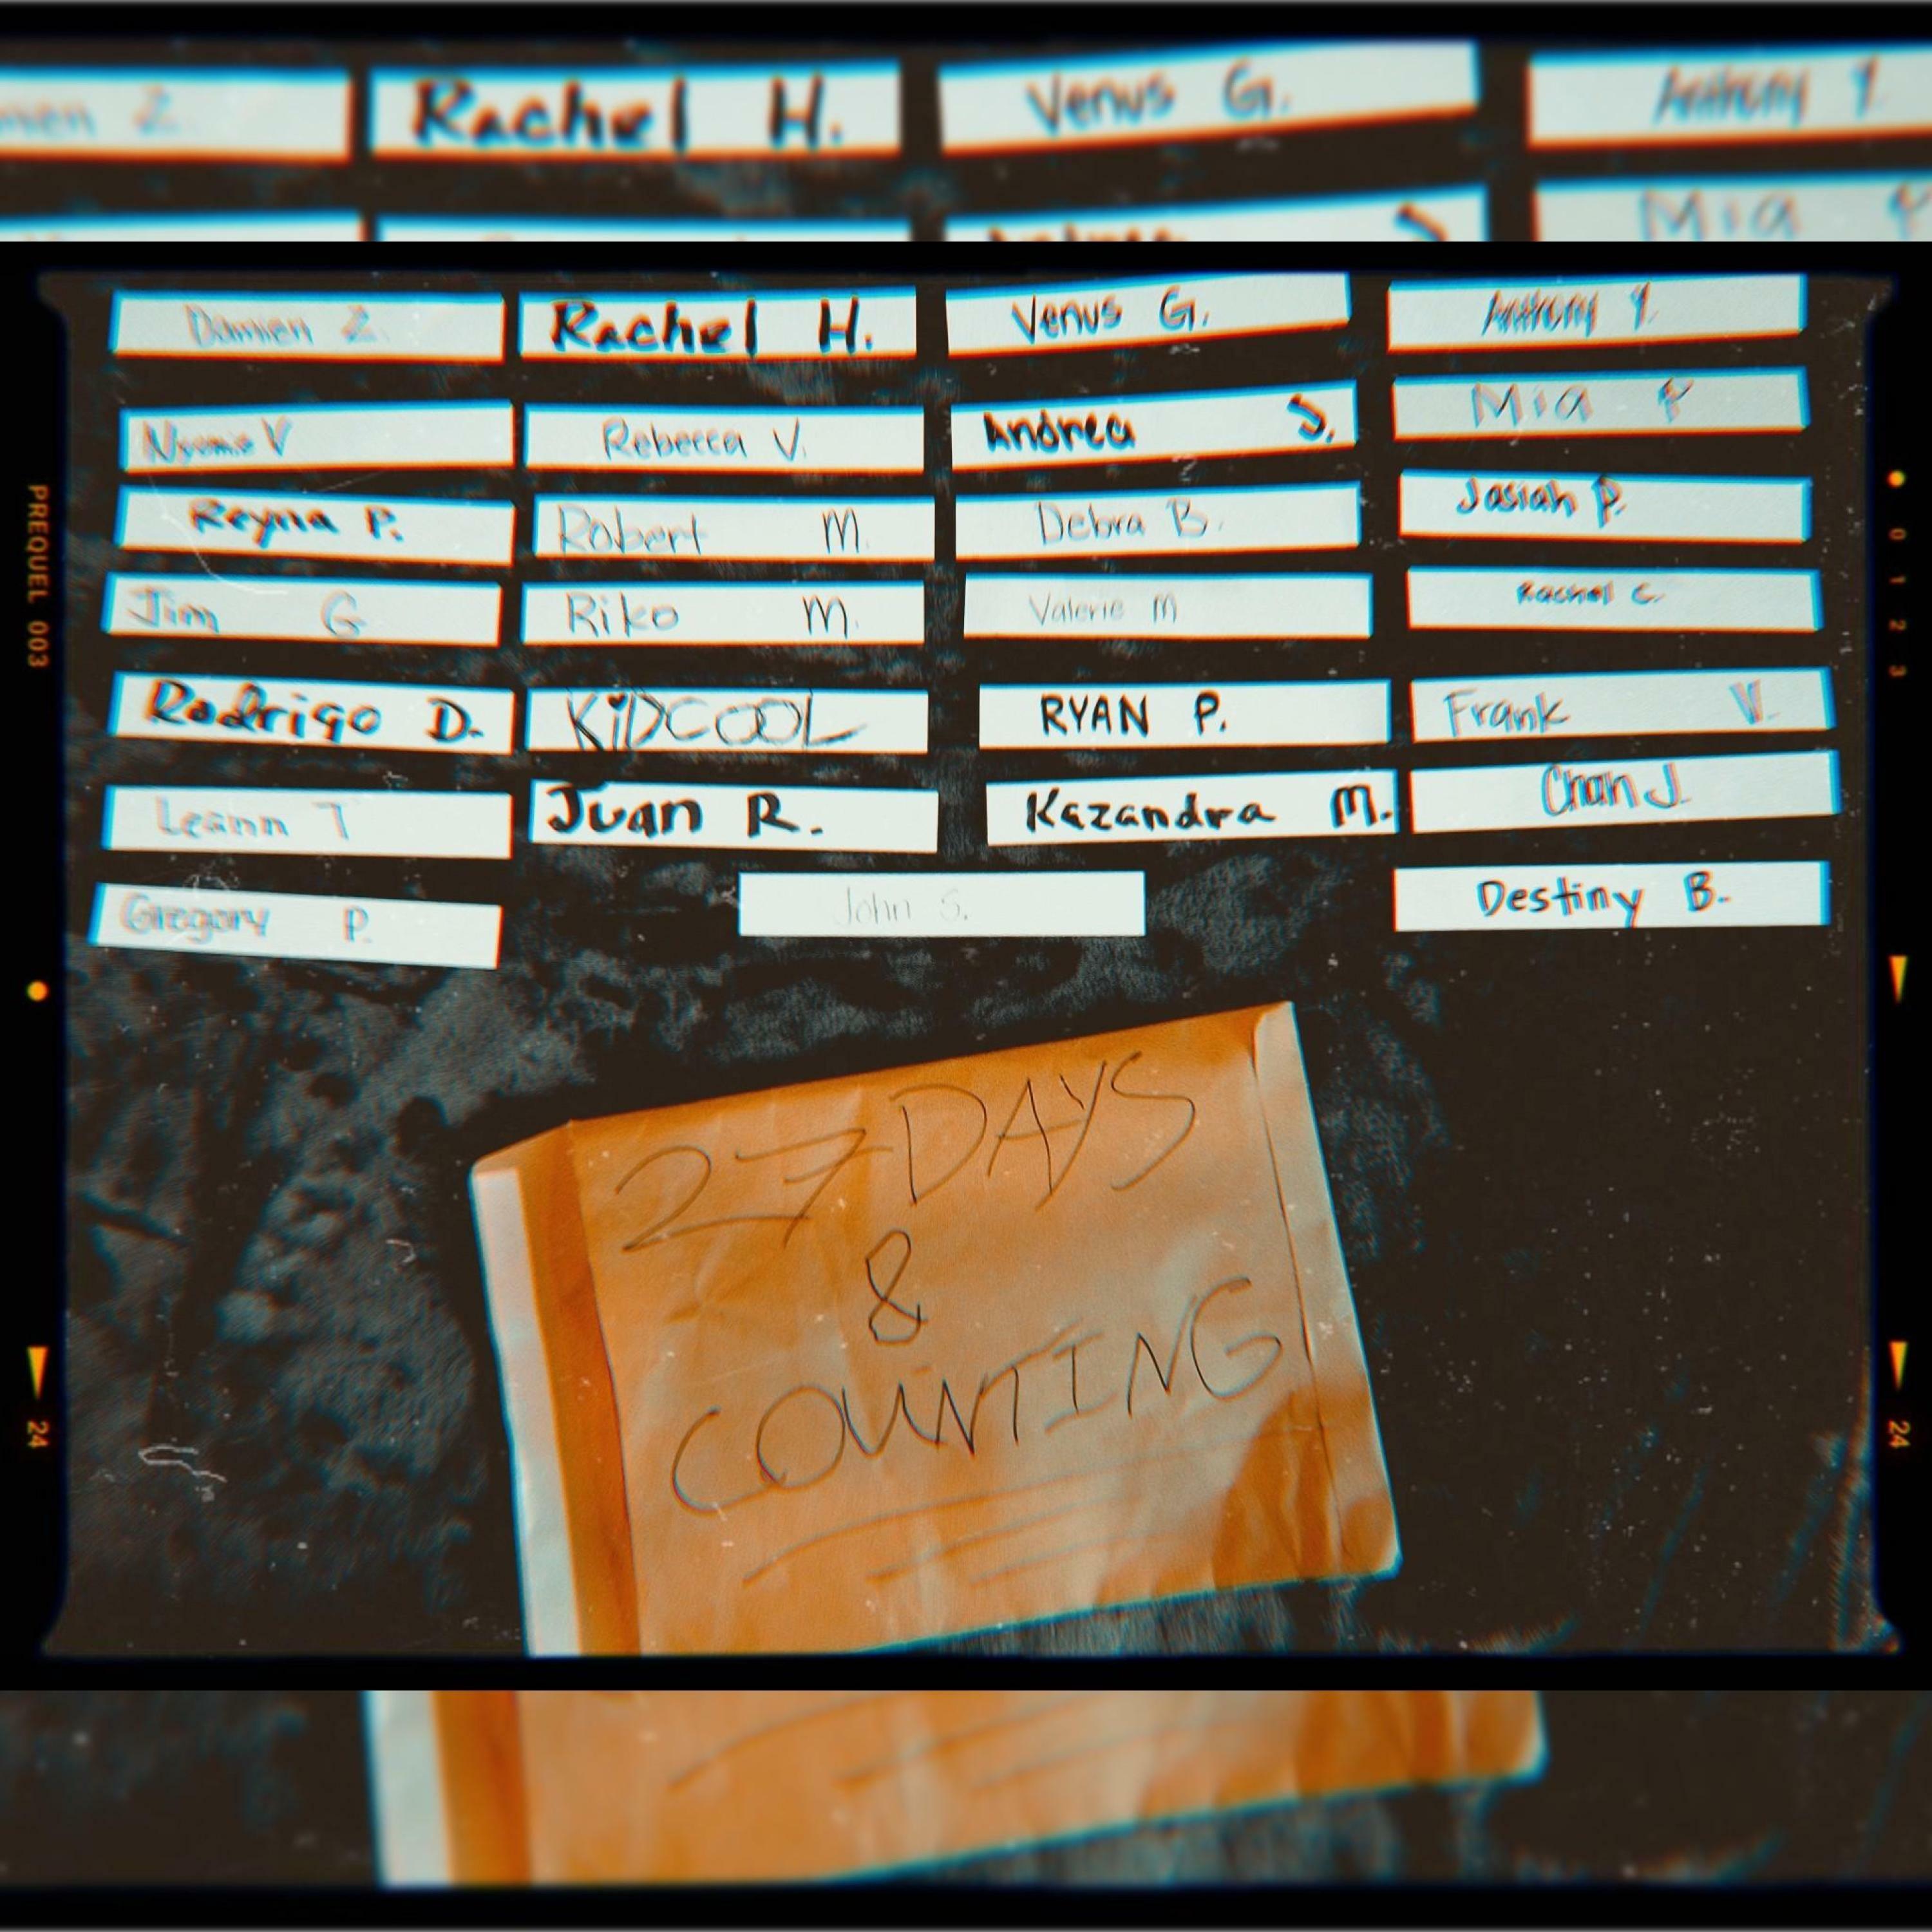 Rachel H.
Venus G.
Anthony Y
Mia P
Damien Z.
Rachel H.
Venus G.
Anthony Y.
Nyomie V
Rebecca V.
Andrea S.
Mia P
Reyna P.
Robert M.
Debra B.
Josiah P.
Jim G
Riko M.
Valerie M
Rachel C.
Rodrigo D.
KiDCOOL
RYAN P.
Frank V.
Leann T
Juan R.
Kazandra M.
Chan J.
Gregory P.
John S.
Destiny B.
27 DAYS
&
COUNTING
PREQUEL 003
0 1 2 3
24
24